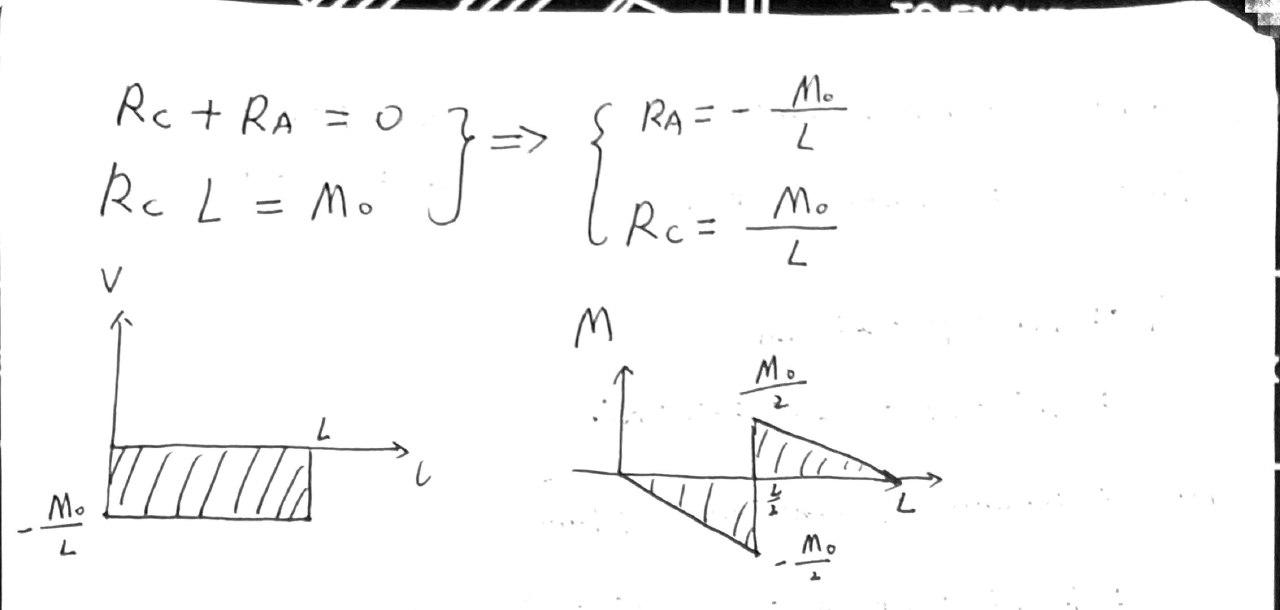 R_C + R_A = 0
R_C L = M_0
} => {
R_A = - M_0 / L
R_C = M_0 / L
V
L
L
- M_0 / L
M
M_0 / 2
L / 2
L
- M_0 / 2